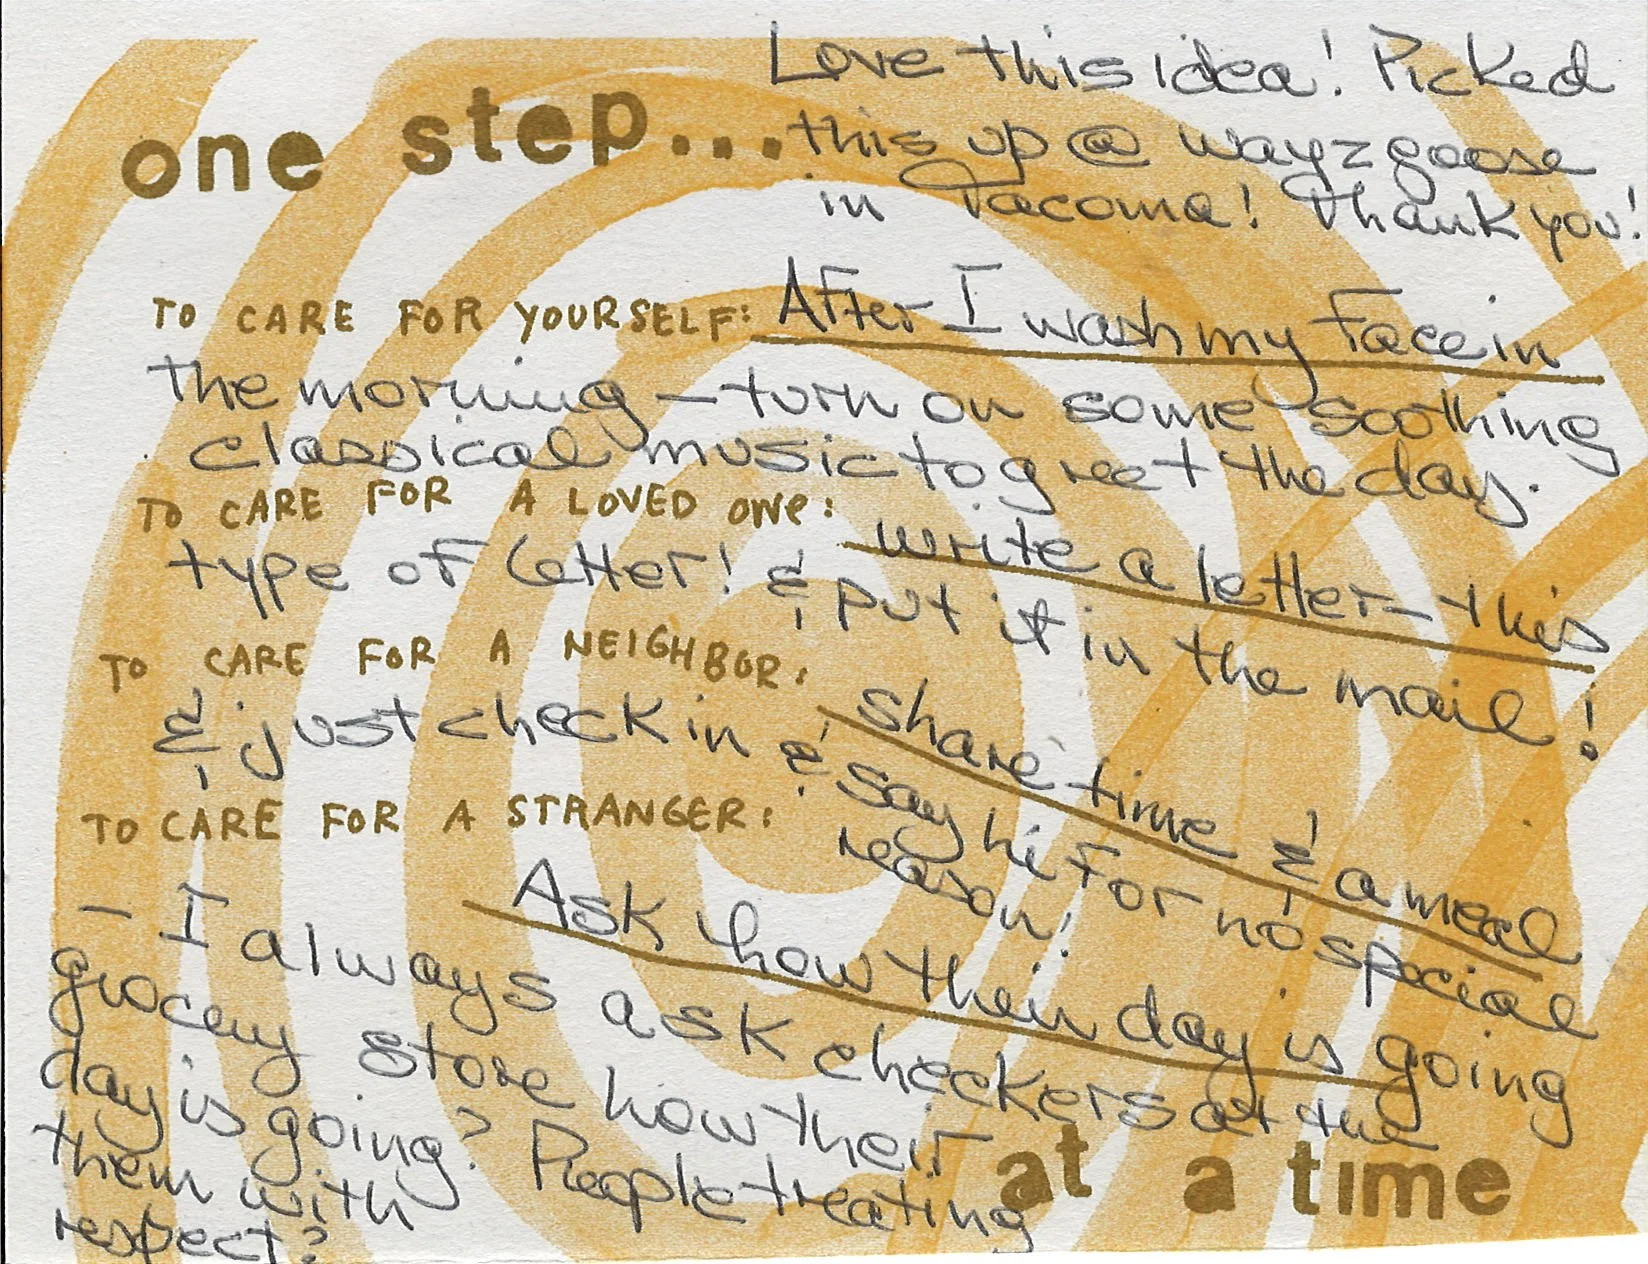 one step...
Love this idea! Picked
this up @ wayzgoose
in Tacoma! Thank you!
TO CARE FOR YOURSELF: After I wash my face in
the morning – turn on some soothing
classical music to greet the day.
TO CARE FOR A LOVED ONE: write a letter – this
type of letter! & put it in the mail!
TO CARE FOR A NEIGHBOR: share time & a meal
& just check in & say hi for no special
reason!
TO CARE FOR A STRANGER: Ask how their day is going
– I always ask checkers at the
grocery store how their
day is going? People treating
them with
respect?
at a time